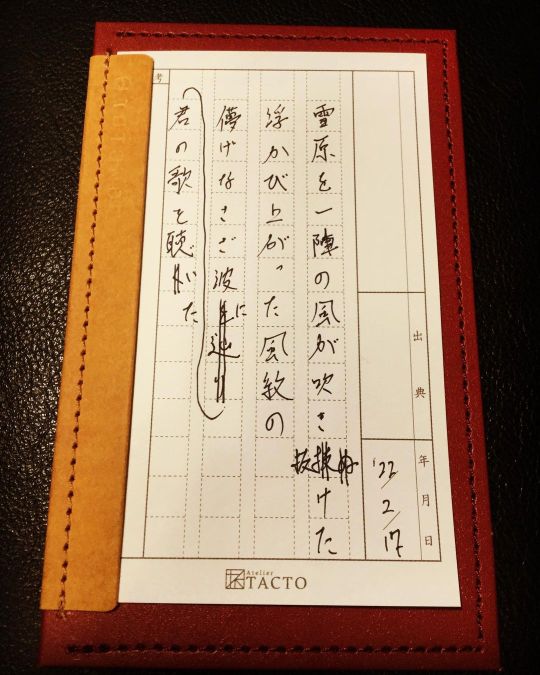 出典
年月日
'22/2/17
雪原を一陣の風が吹き抜けた
浮かび上がった風紋の
儚げなさざ波に
君の歌を聴いた
考
Atelier
TACTO